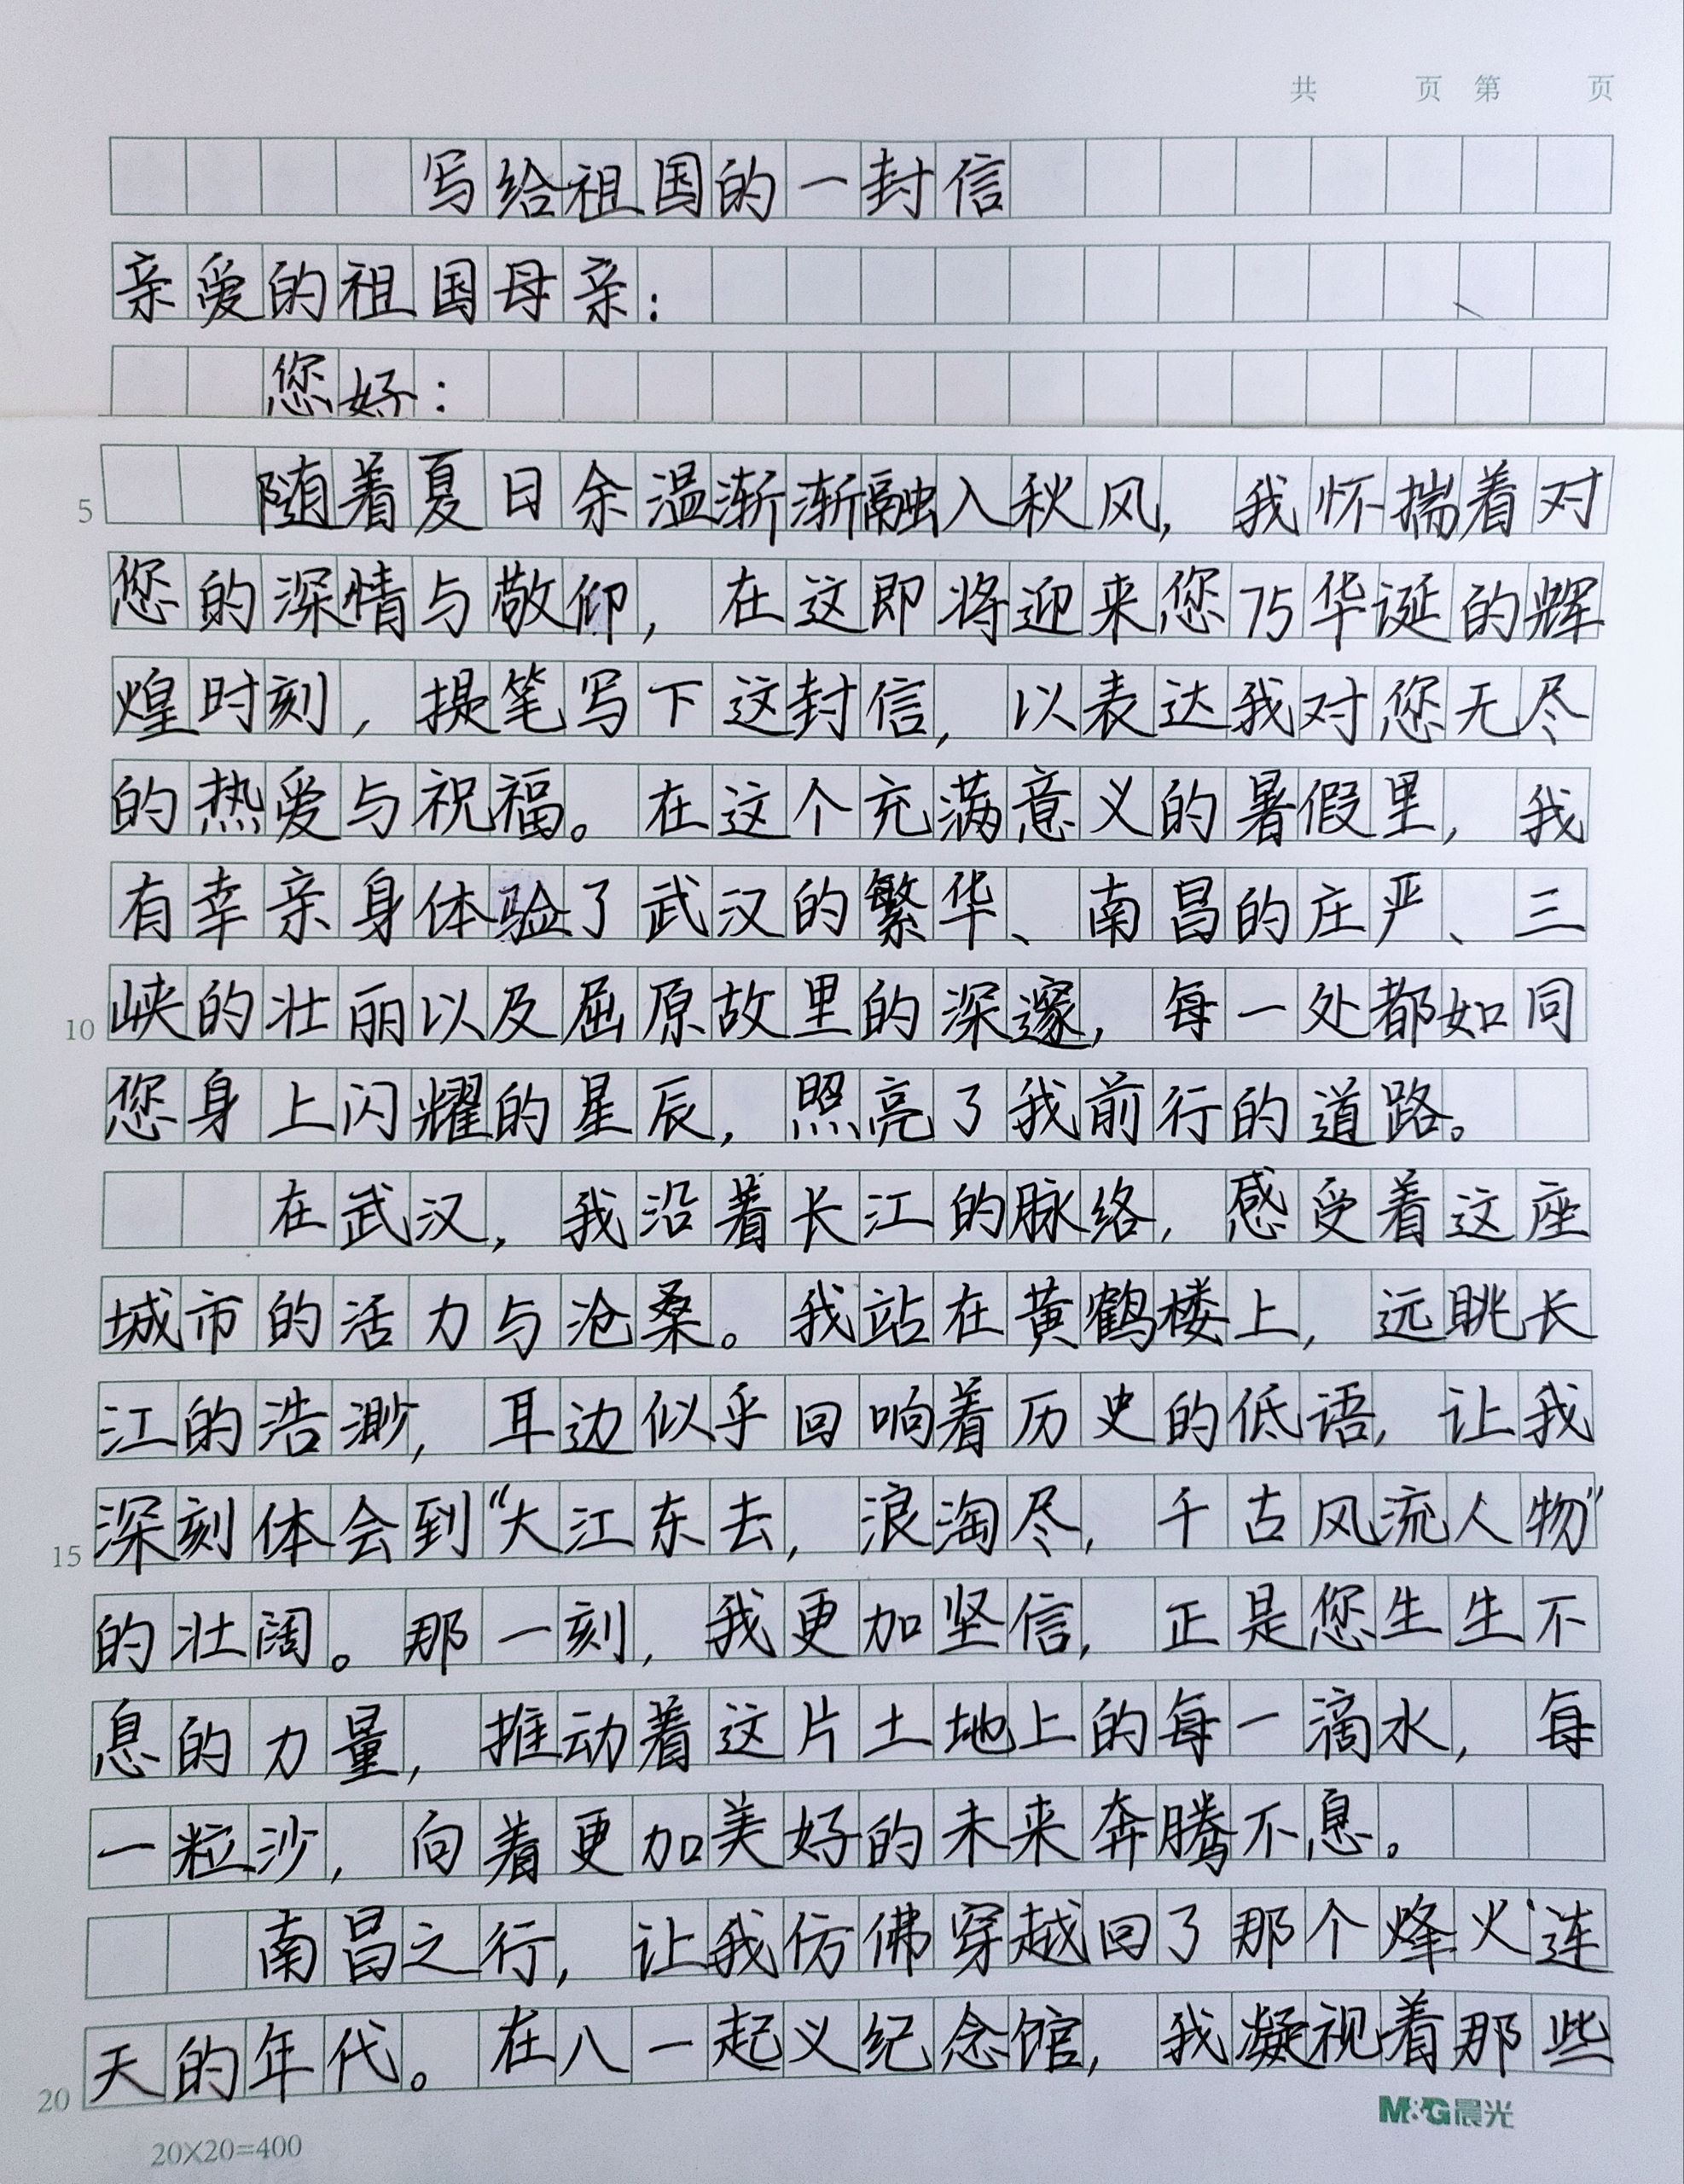 共 页 第 页
写给祖国的一封信
亲爱的祖国母亲：
您好：
5 随着夏日余温渐渐融入秋风，我怀揣着对
您的深情与敬仰，在这即将迎来您75华诞的辉
煌时刻，提笔写下这封信，以表达我对您无尽
的热爱与祝福。在这个充满意义的暑假里，我
有幸亲身体验了武汉的繁华、南昌的庄严、三
10 峡的壮丽以及屈原故里的深邃，每一处都如同
您身上闪耀的星辰，照亮了我前行的道路。
在武汉，我沿着长江的脉络，感受着这座
城市的活力与沧桑。我站在黄鹤楼上，远眺长
江的浩渺，耳边似乎回响着历史的低语，让我
15 深刻体会到“大江东去，浪淘尽，千古风流人物”
的壮阔。那一刻，我更加坚信，正是您生生不
息的力量，推动着这片土地上的每一滴水，每
一粒沙，向着更加美好的未来奔腾不息。
南昌之行，让我仿佛穿越回了那个烽火连
20 天的年代。在八一起义纪念馆，我凝视着那些
M&G晨光
20X20=400